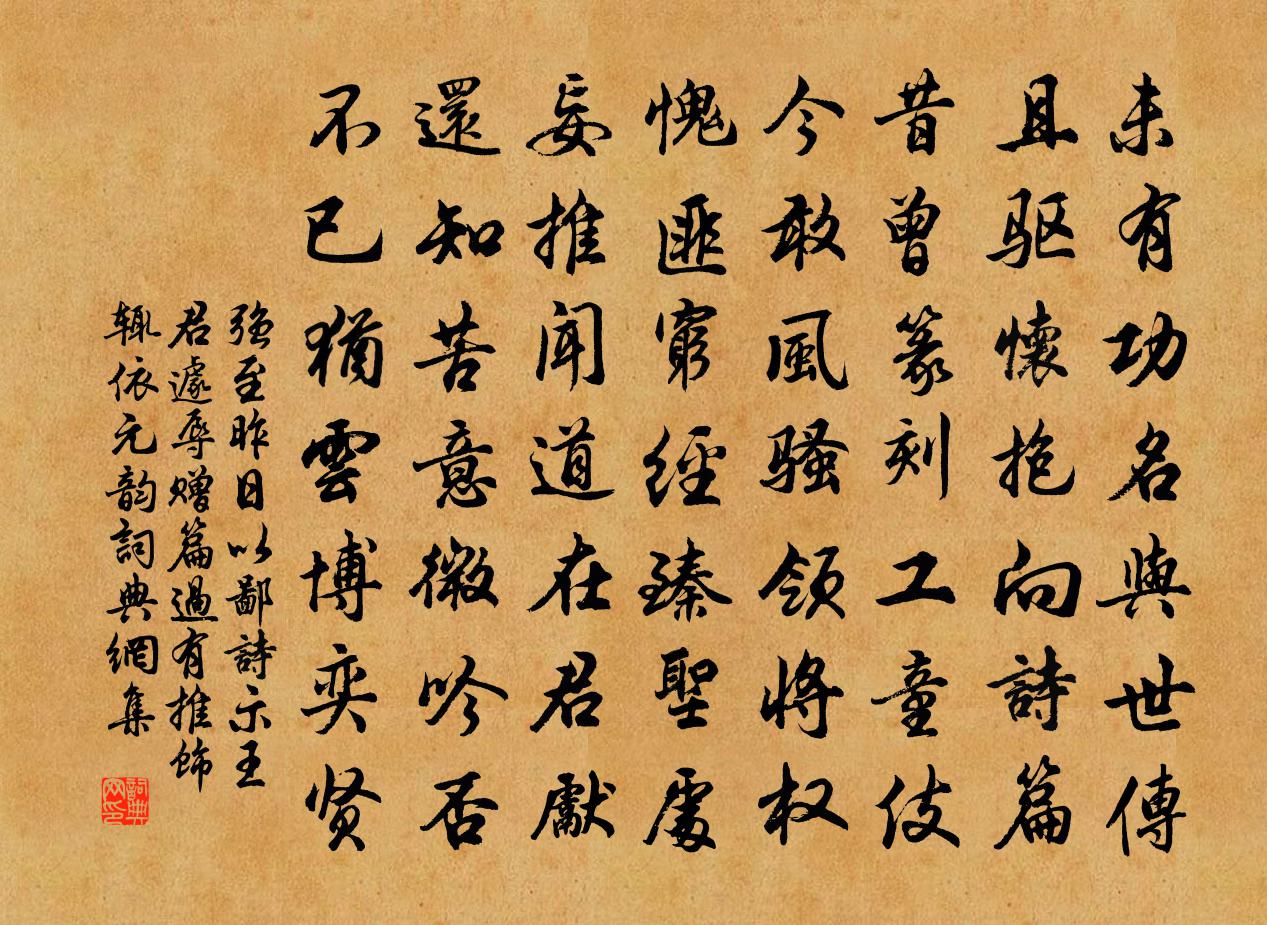 未有功名與世傳
且驱懷抱向詩篇
昔曾篆刻工童伎
今敢風骚領将权
愧匪窮經臻聖處
妄推聞道在君獻
還知苦意微吟否
不已猶雲博奕贤
强至昨日以鄙詩示王
君遽辱赠篇過有推飾
辄依元韵詞典網集
詞典网印